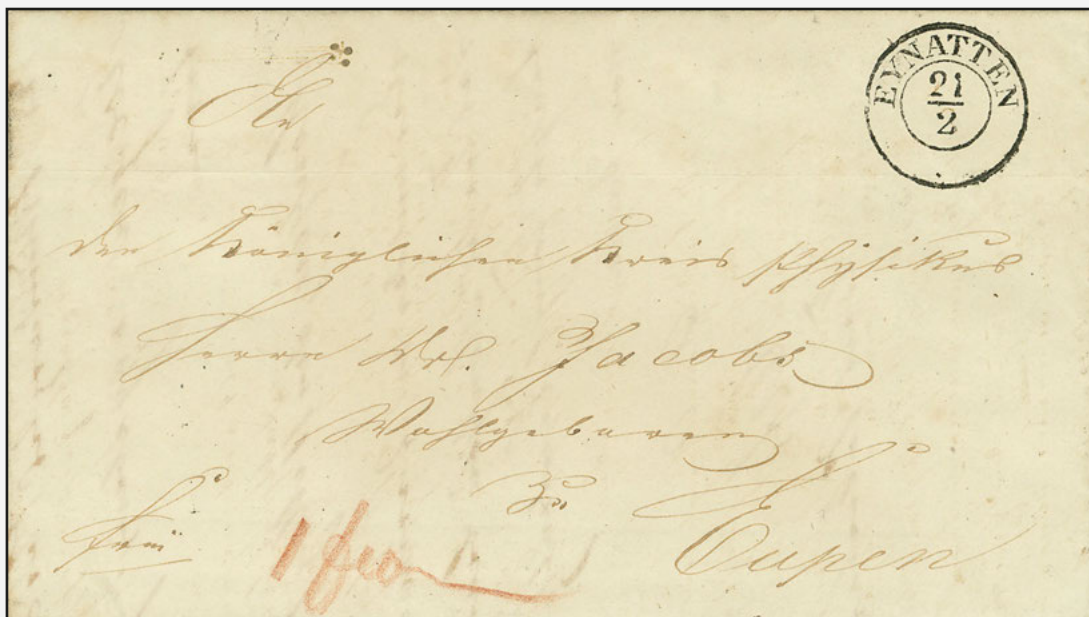 EYNATTEN
21
2
An
den Königlichen Kreis Physikus
Herrn Dr. Jacobs
Wohlgeboren
zu
Eupen
frei